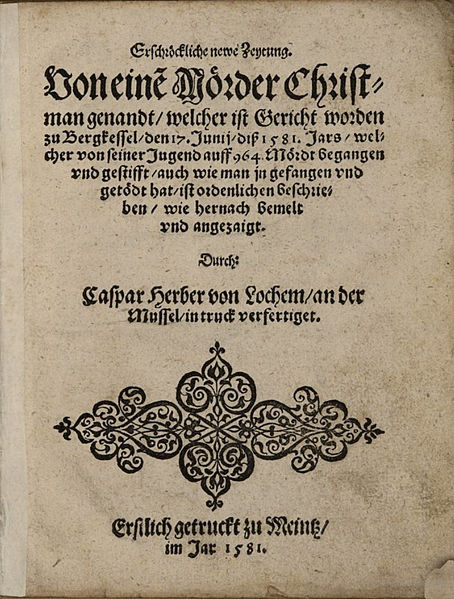 Erschröckliche newe Zeytung.
Von eine͂ Mörder Christ-
man genandt/ welcher ist Gericht worden
zu Bergkessel/ den 17. Junij/ diß 1581. Jars/ wel-
cher von seiner Jugend auff 964. Mördt begangen
vnd gestifft/ auch wie man jn gefangen vnd
getödt hat/ ist ordenlichen beschrie-
ben/ wie hernach bemelt
vnd angezaigt.
Durch:
Caspar Herber von Lochem/ an der
Mussel/ in truck verfertiget.
Erstlich getruckt zu Meintz/
im Jar 1581.